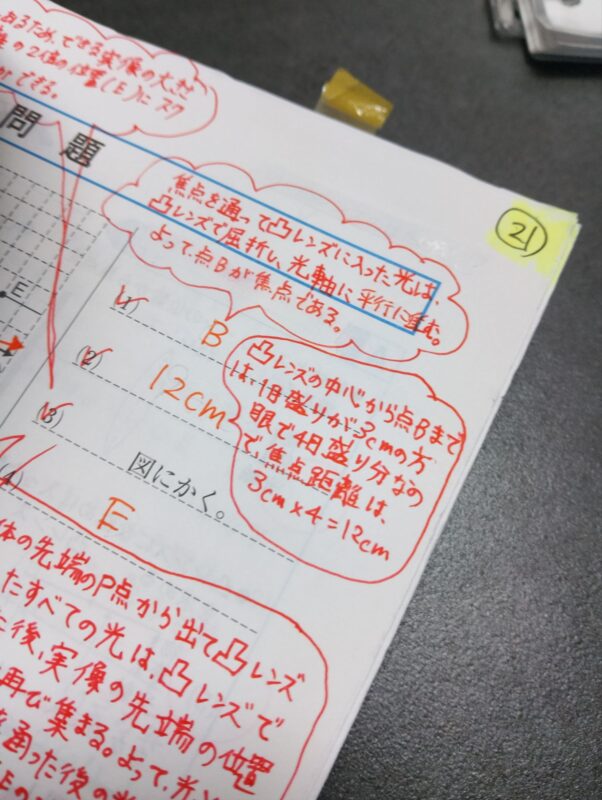 あるため、できる実像の大き
の2倍の位置(E)にスク
できる。
問題
21
焦点を通って凸レンズに入った光は、
凸レンズで屈折し、光軸に平行に進む。
よって、点Bが焦点である。
E
(1) B
(2) 12cm
凸レンズの中心から点Bまで
は、1目盛りが3cmの方
眼で4目盛り分なの
で、焦点距離は、
3cm×4=12cm
(3) 図にかく。
(4) E
体の先端のP点から出て凸レンズ
たすべての光は、凸レンズで
た後、実像の先端の位置
再び集まる。よって、光
通った後の光
Eの